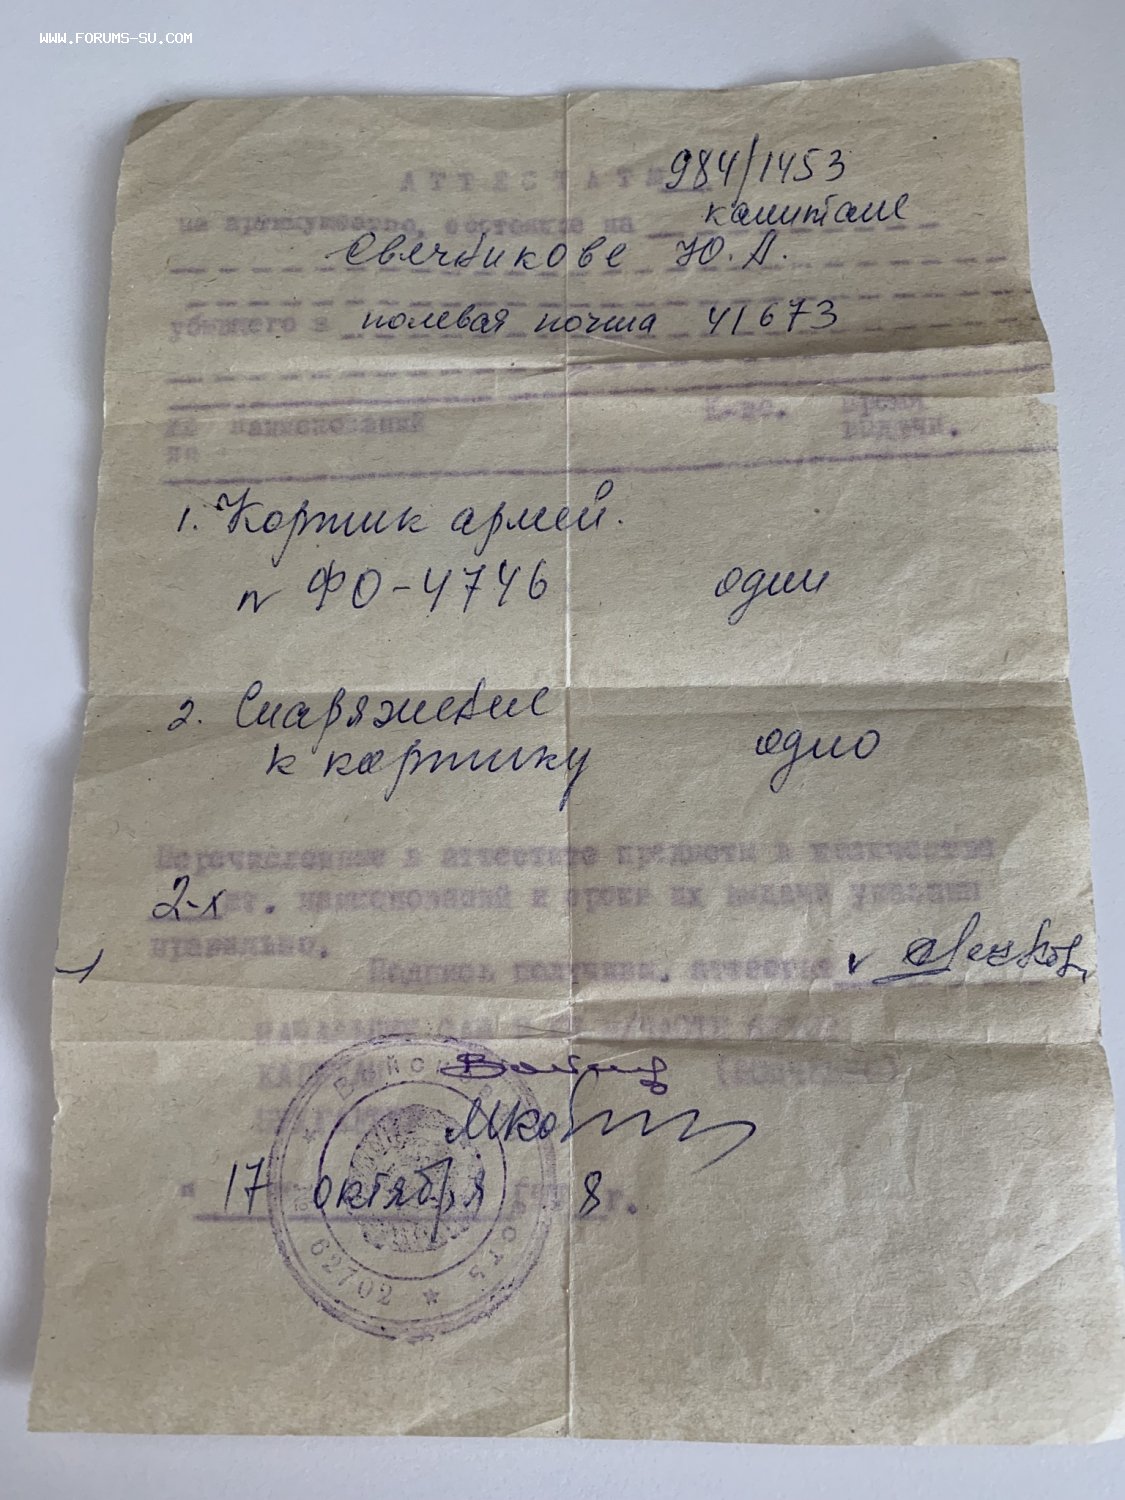 WWW.FORUMS-SU.COM
АТТЕСТАТ № 984/1453
на артимущество, состоящее на капитане
Овечникове Ю. А.
убывшего в полевая почта 41673
№ наименований К-во. время
пп выдачи.
1. Кортик армей.
№ ФО-4746 один
2. Снаряжение
к кортику одно
Перечисленные в аттестате предметы в количестве
2-х шт. наименований и сроки их выдачи указаны
правильно.
Подпись получив. аттестат
НАЧАЛЬНИК В/ЧАСТИ
КАПИТАН
"17 октября 8 г.
62702